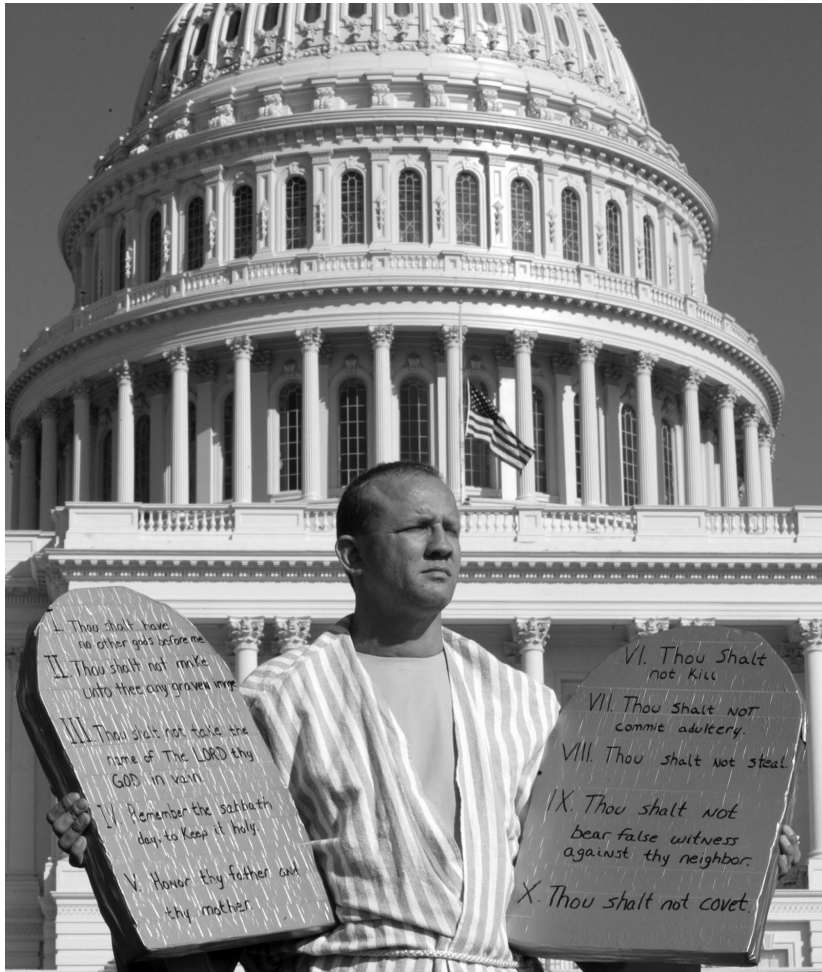 I. Thou shalt have
no other gods before me
II. Thou shalt not make
unto thee any graven image
III. Thou shalt not take the
name of The LORD thy
GOD in vain
IV. Remember the sabbath
day, to Keep it holy.
V. Honor thy father and
thy mother.
VI. Thou Shalt
not Kill
VII. Thou Shalt NOT
commit adultery.
VIII. Thou shalt Not steal
IX. Thou shalt NOT
bear false witness
against thy neighbor.
X. Thou shalt not covet.